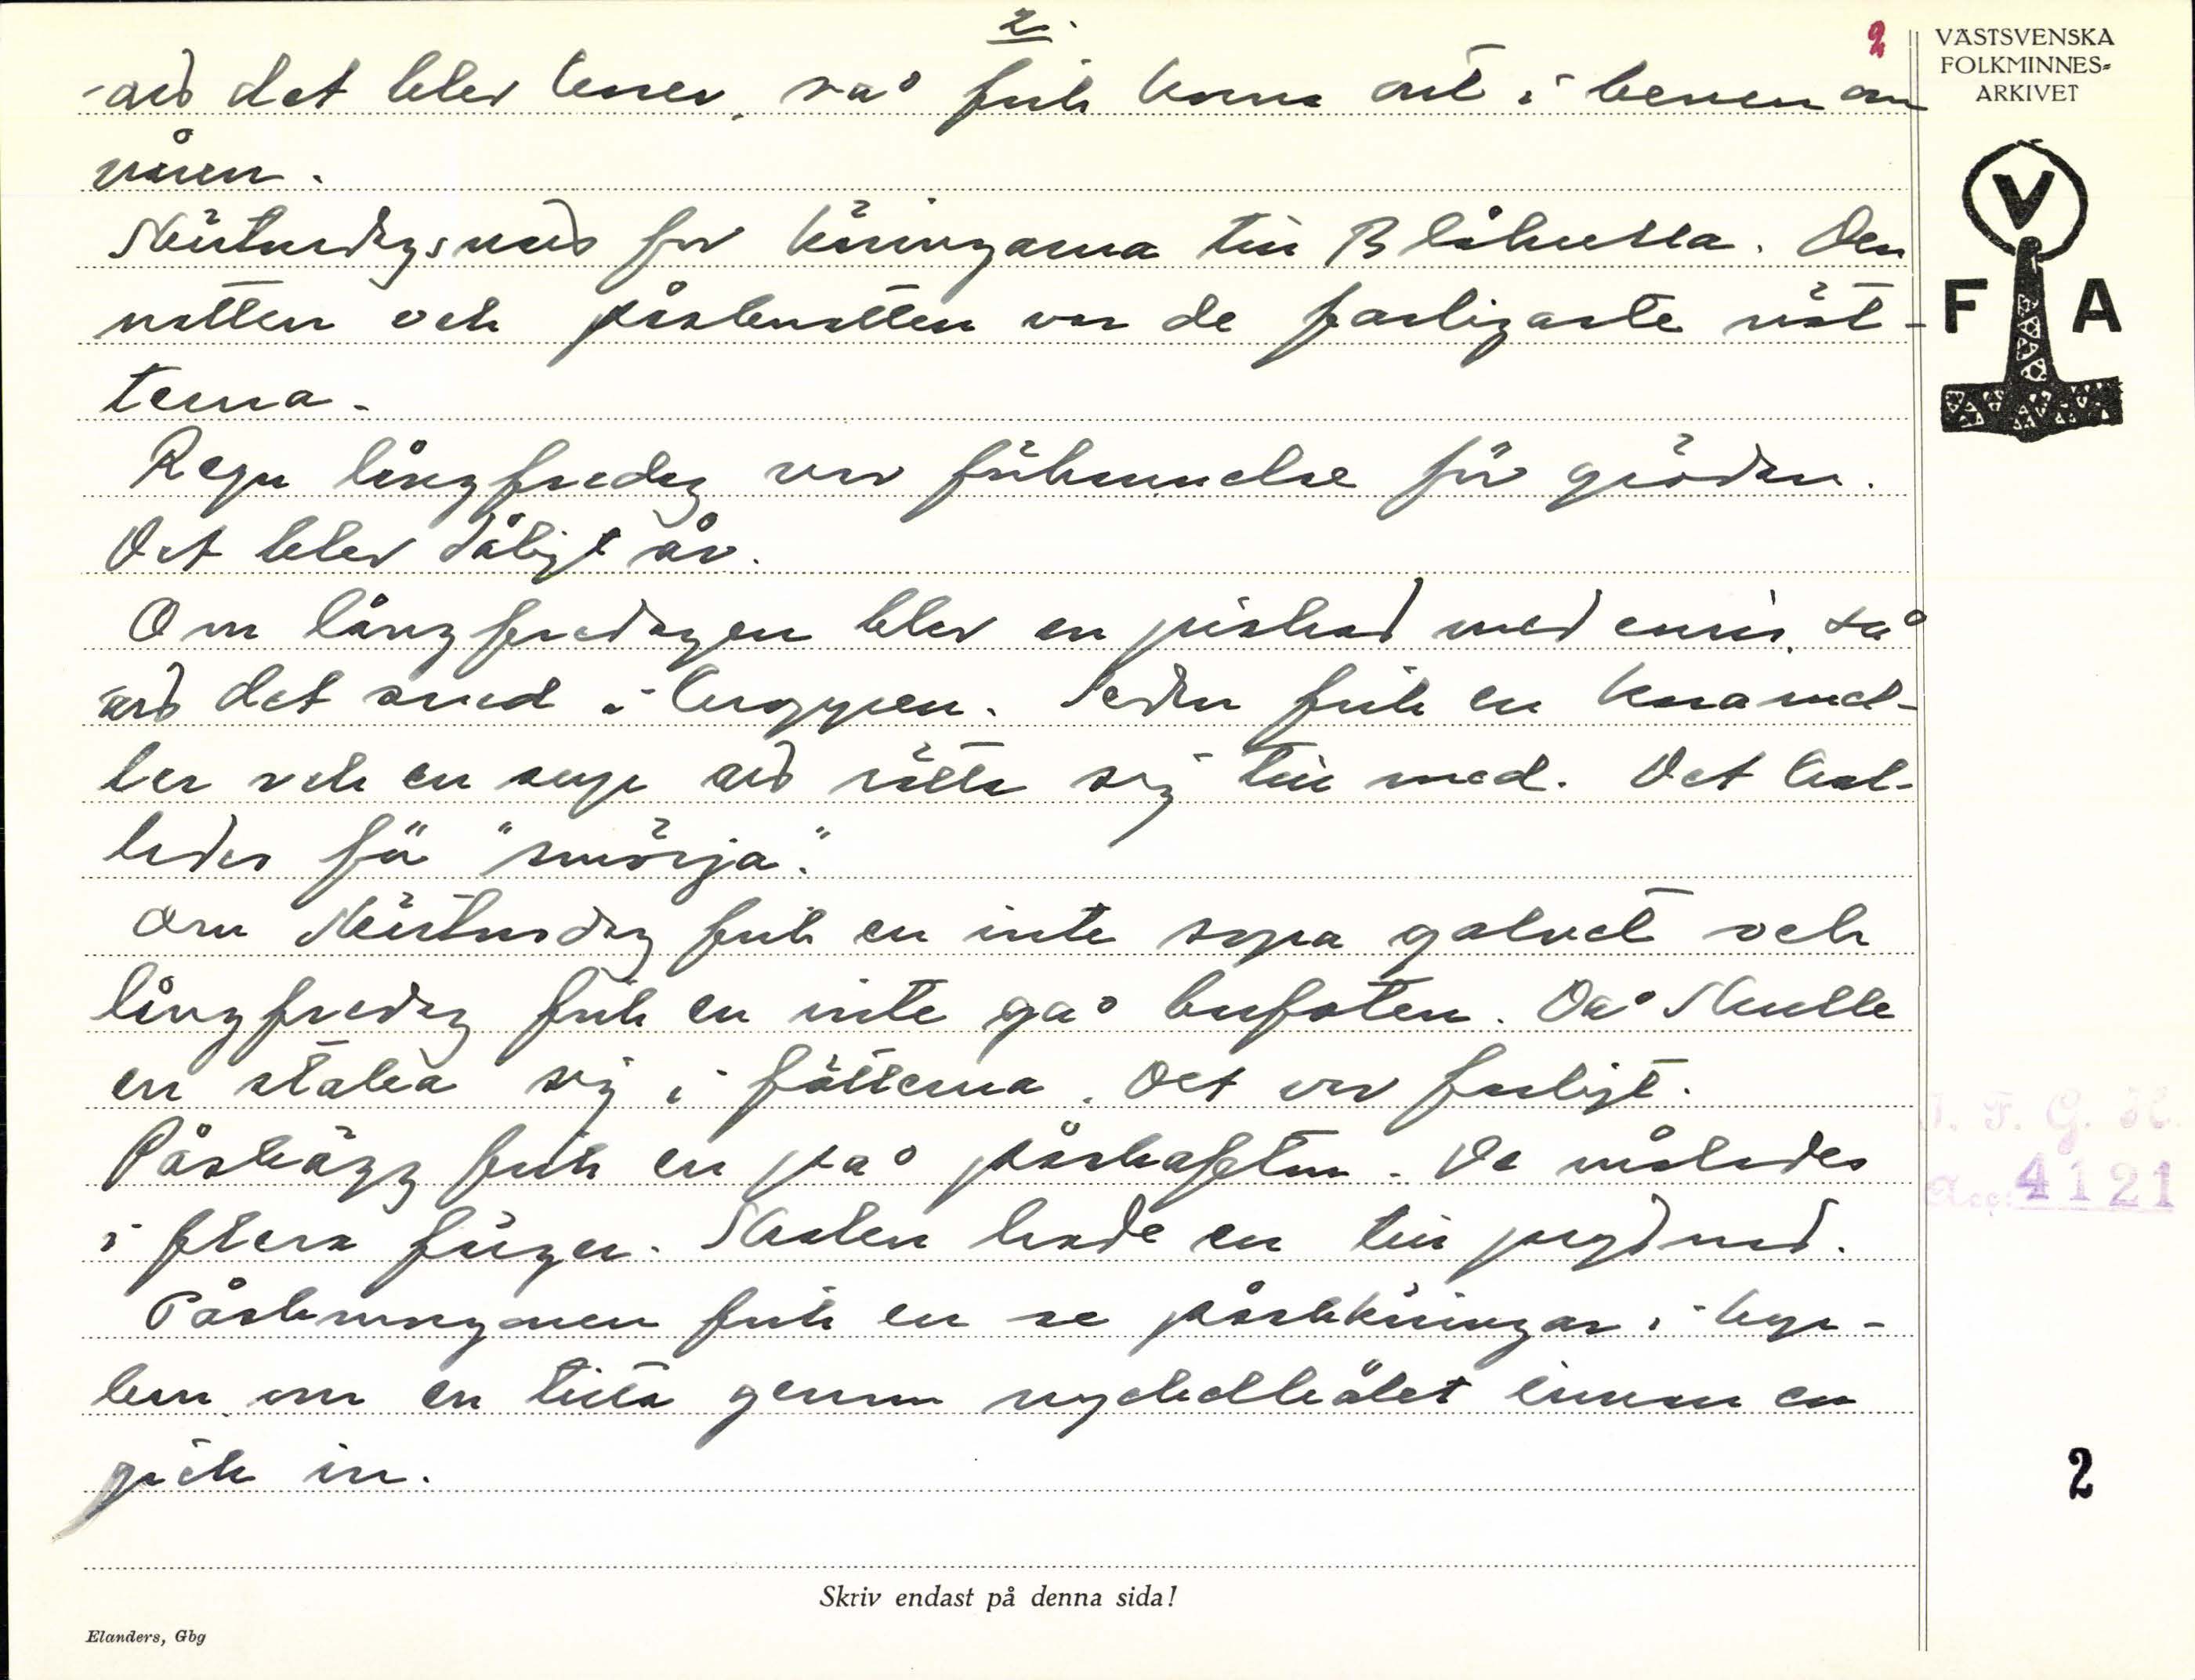 2.
2
VÄSTSVENSKA
FOLKMINNES-
ARKIVET
V
F A
det blev så fick korna ont i benen om
våren.
Skärtorsdagsnatt for käringarna till Blåkulla. Den
natten och påskenatten var de farligaste nät-
terna.
Regn långfredag var förhinnelse för grödan.
Det blev dåligt år.
Om långfredagen blev en piskad med enris, så
att det sved i kroppen. Sedan fick en karamel-
ler och en sup att rätta sig till med. Det kal-
lades för "smörja".
Om Skärtorsdag fick en inte sopa golvet och
långfredag fick en inte gå barfoten. Då skulle
en staka sig i fötterna. Det var farligt.
Påskägg fick en på påskafton. De målades
i flera färger. Skalen hade en till prydnad.
Påskmorgonen fick en se påskkäringar i kyr-
kan, om en titta genom nyckelhålet innan en
gick in.
I. F. G. H.
Acc: 4121
2
Skriv endast på denna sida!
Elanders, Gbg